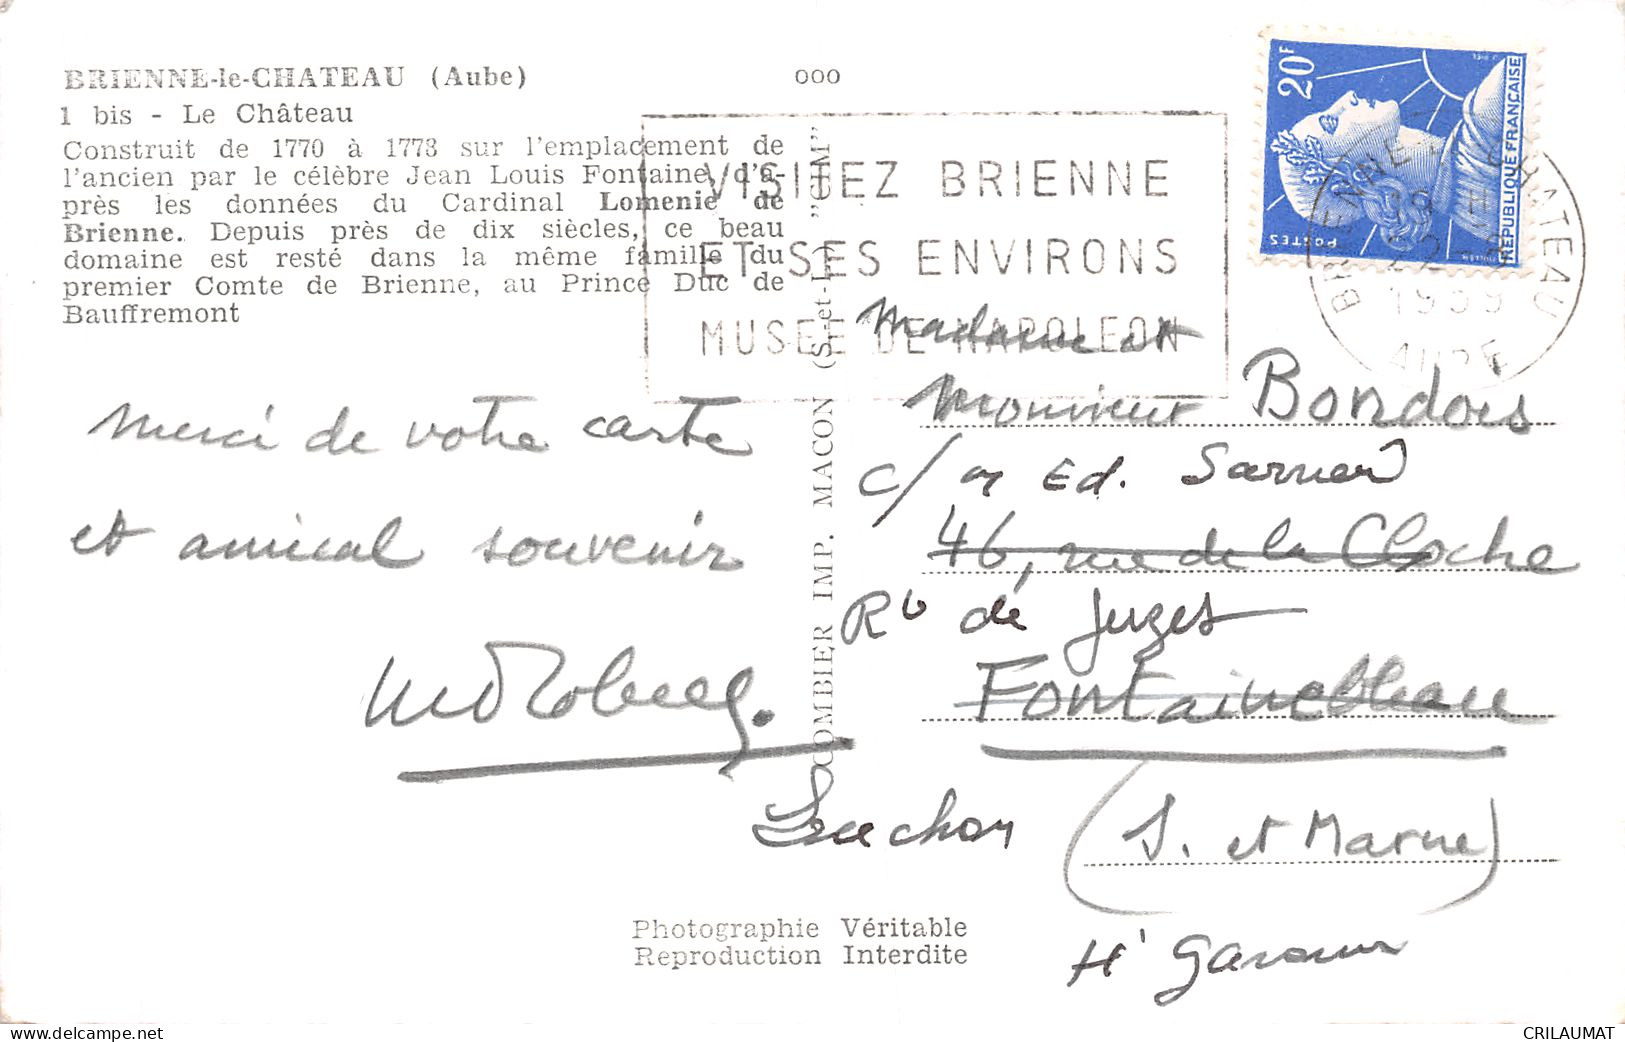 BRIENNE-le-CHATEAU (Aube)
1 bis - Le Château
Construit de 1770 à 1773 sur l'emplacement de
l'ancien par le célèbre Jean Louis Fontaine, d'a-
près les données du Cardinal Lomenie de
Brienne. Depuis près de dix siècles, ce beau
domaine est resté dans la même famille du
premier Comte de Brienne, au Prince Duc de
Bauffremont
000
VISITEZ BRIENNE
ET SES ENVIRONS
MUSEE DE NAPOLEON
20F
REPUBLIQUE FRANÇAISE
POSTES
BRIENNE-LE-CHATEAU
1959
AUBE
COMBIER IMP. MACON (S.-et-L.) "CIM"
Merci de votre carte
et amical souvenir
Madame et
Monsieur Bondois
c/ M Ed.
46, rue de la Cloche
de Juzet
Fontainebleau
Luchon
(S. et Marne)
Hte Garonne
Photographie Véritable
Reproduction Interdite
delcampe.net
CRILAUMAT